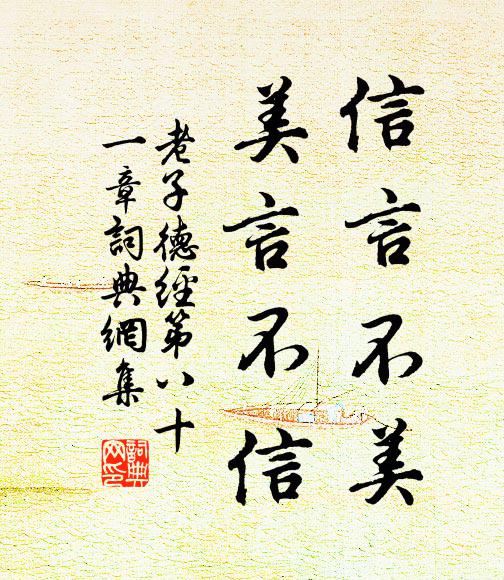 信言不美
美言不信
老子德經第八十
一章詞典網集
詞典
網印